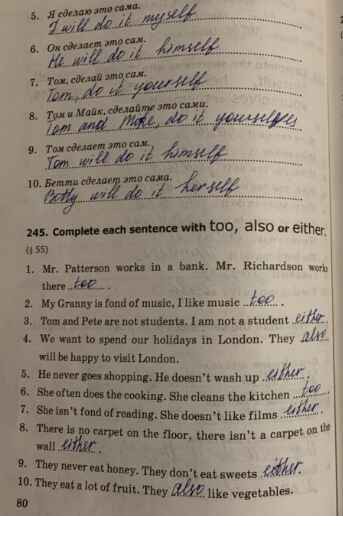 5. Я сделаю это сама.
I will do it myself
6. Он сделает это сам.
He will do it himself
7. Том, сделай это сам.
Tom, do it yourself
8. Том и Майк, сделайте это сами.
Tom and Mike, do it yourselves
9. Том сделает это сам.
Tom will do it himself
10. Бетти сделает это сама.
Betty will do it herself
245. Complete each sentence with too, also or either.
(§ 55)
1. Mr. Patterson works in a bank. Mr. Richardson works
there too.
2. My Granny is fond of music, I like music too.
3. Tom and Pete are not students. I am not a student either.
4. We want to spend our holidays in London. They also
will be happy to visit London.
5. He never goes shopping. He doesn't wash up either.
6. She often does the cooking. She cleans the kitchen too.
7. She isn't fond of reading. She doesn't like films either.
8. There is no carpet on the floor, there isn't a carpet on the
wall either.
9. They never eat honey. They don't eat sweets either.
10. They eat a lot of fruit. They also like vegetables.
80